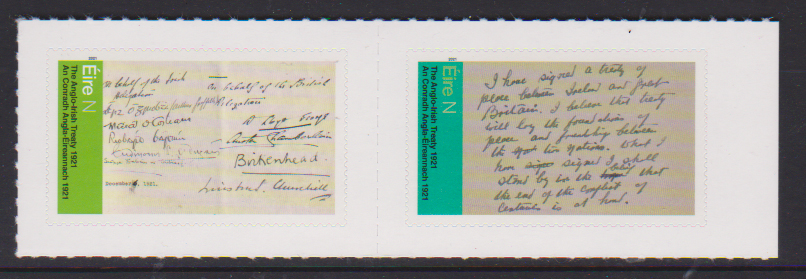 2021
Éire N
The Anglo-Irish Treaty 1921
An Conradh Angla-Éireannach 1921
behalf of the Irish
Delegation
On behalf of the British
Delegation
D Lloyd George
Austen Chamberlain
Birkenhead.
Winston S. Churchill
December 6, 1921.
2021
Éire N
The Anglo-Irish Treaty 1921
An Conradh Angla-Éireannach 1921
I have signed a treaty of
peace between Ireland and Great
Britain. I believe that treaty
will lay the foundations of
peace and friendship between
the two Nations. What I
have signed I shall
stand by in the belief that
the end of the conflict of
centuries is at hand.